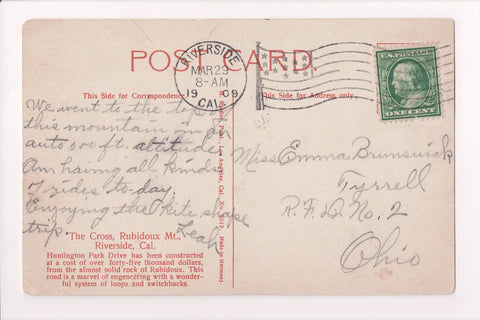 POST CARD
RIVERSIDE
MAR 23
8-AM
1909
CAL.
U.S. POSTAGE
ONE CENT
This Side for Correspondence
This Side for Address only
We went to the top of
this mountain in an
auto 500 ft. altitude
Am having all kinds
of rides to-day.
Enjoying the kite shape
trip.
Leah
Miss Emma Brunswick
Tyrrell
R. F. D. No. 2
Ohio
Los Angeles, Cal.
Made in Germany.
The Cross, Rubidoux Mt.,
Riverside, Cal.
Huntington Park Drive has been constructed
at a cost of over forty-five thousand dollars,
from the almost solid rock of Rubidoux. This
road is a marvel of engencering with a wonder-
ful system of loops and switchbacks.